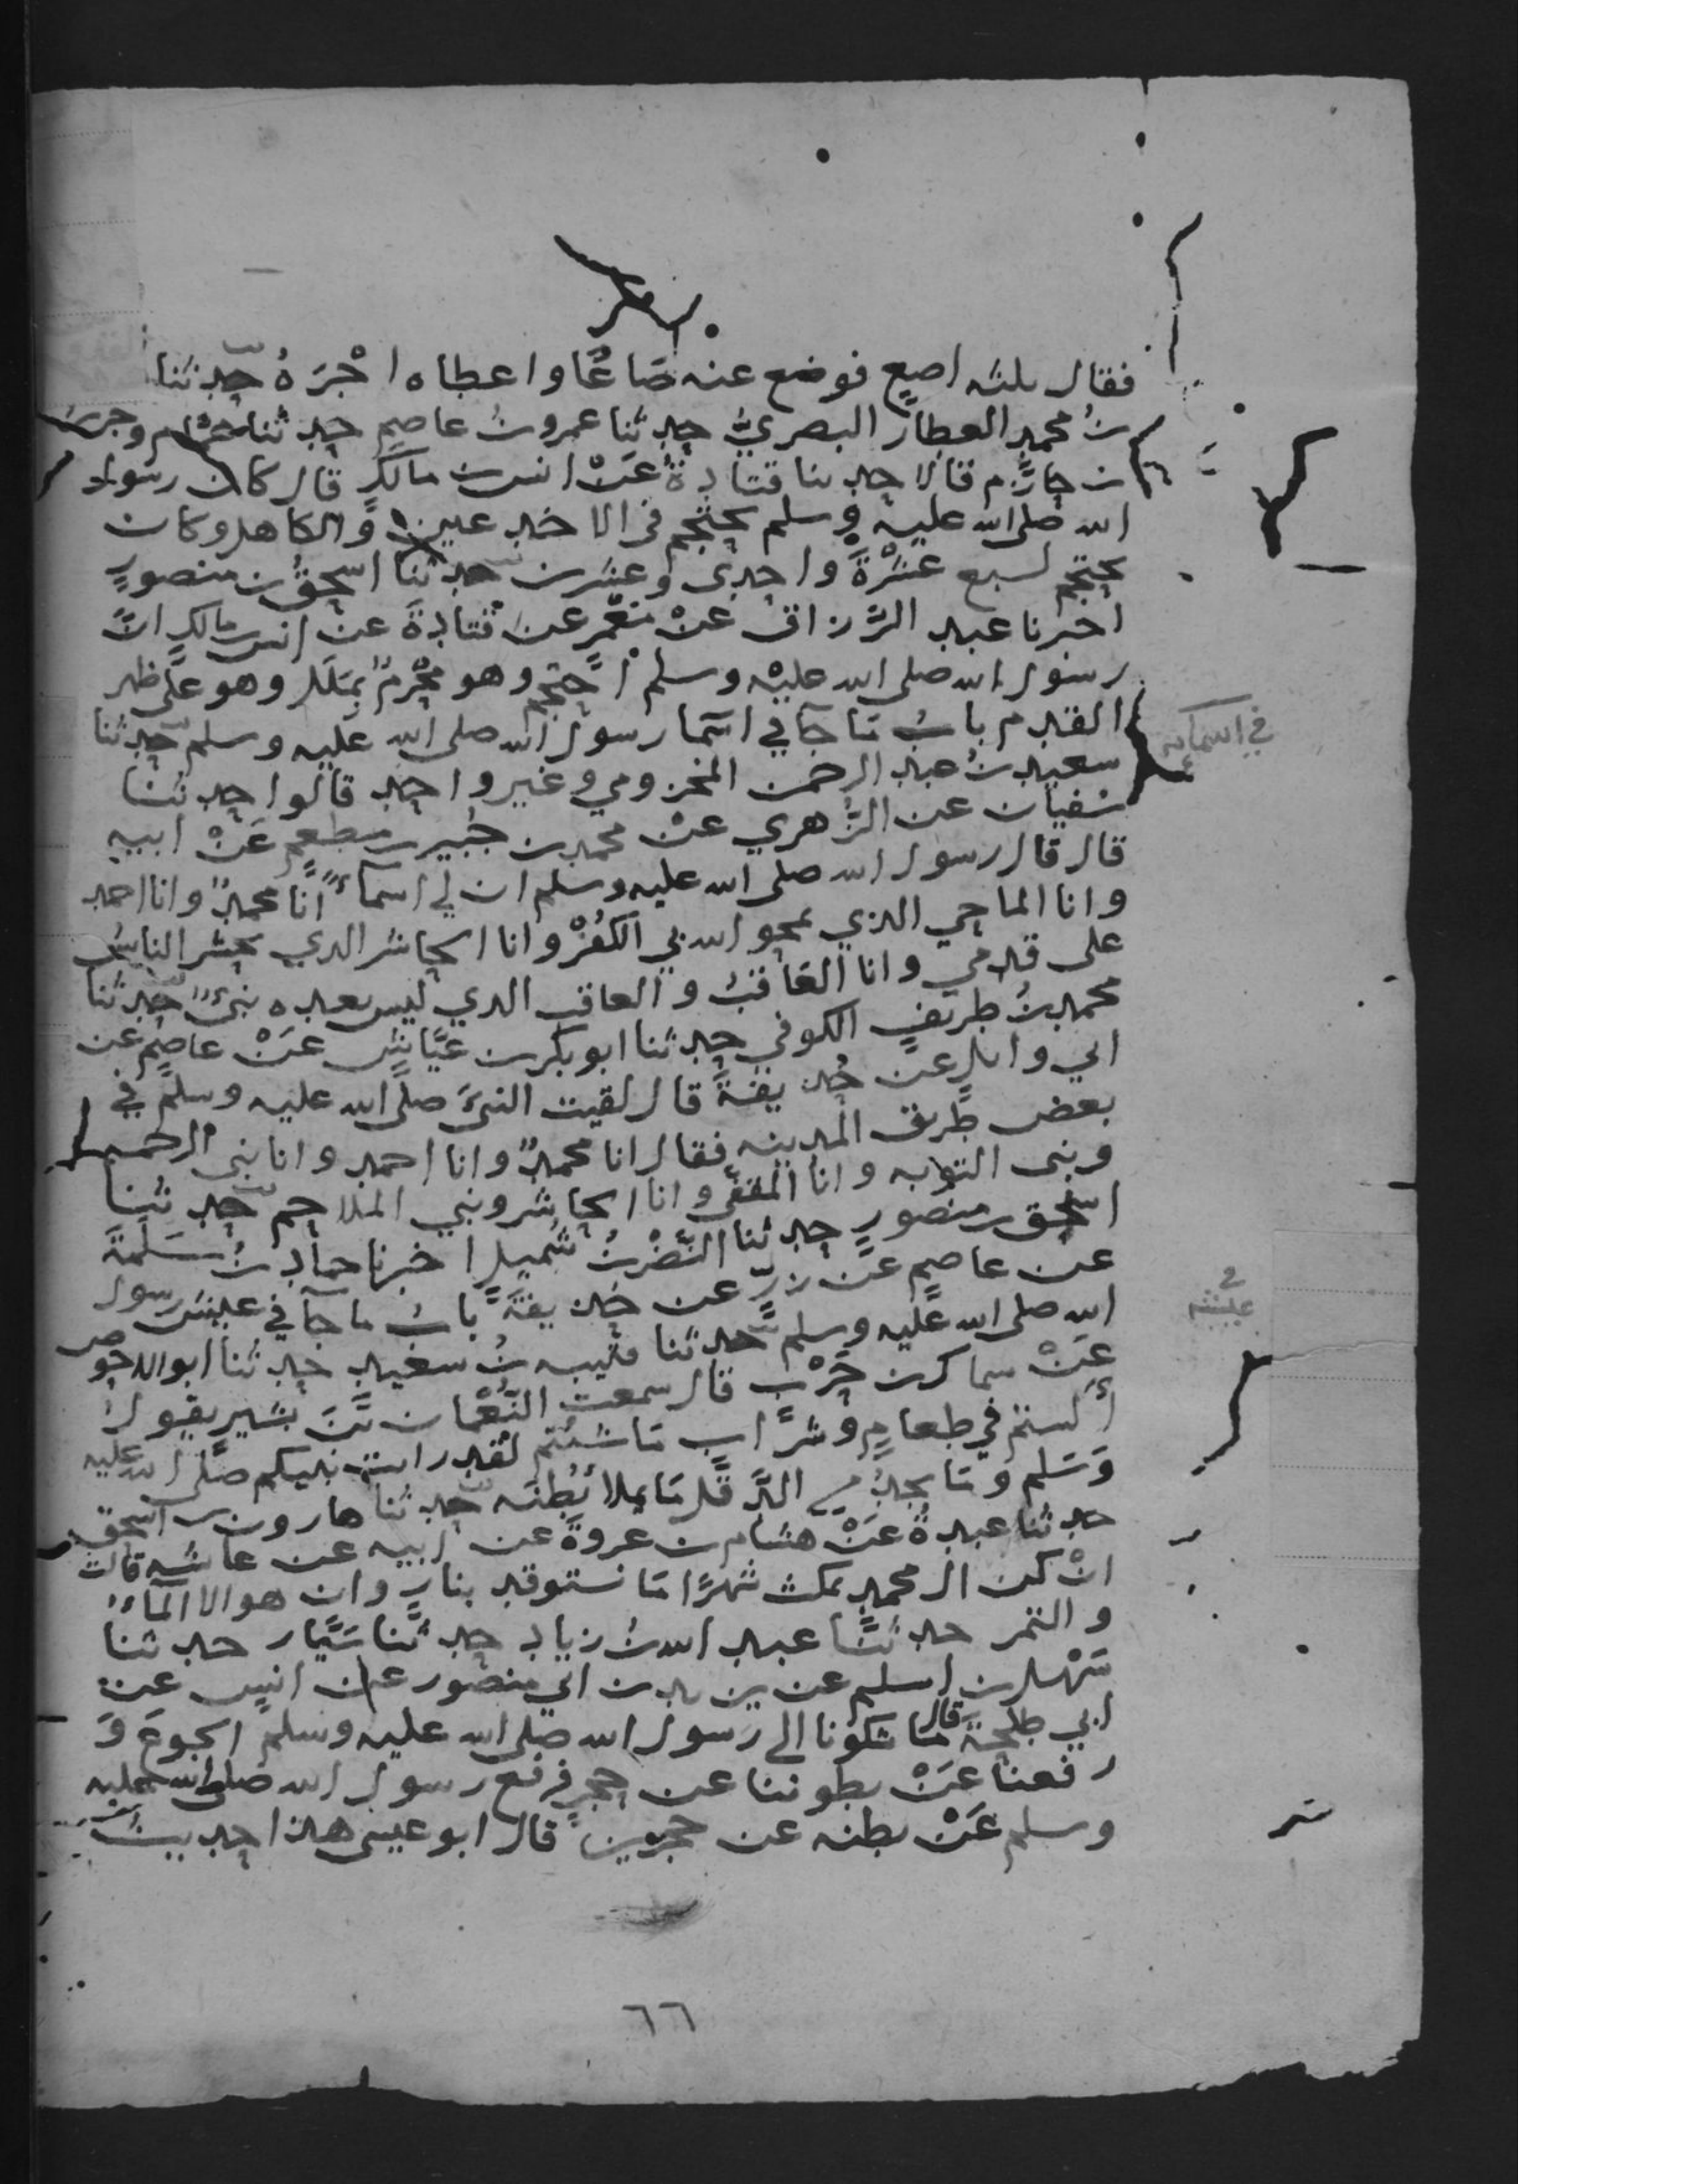 فقال ثلثه اصعٍ فوضع عنه صَاعًا واعطاه اجْرَهُ حدثنا
بنُ محمدٍ العطار البصريُّ حدثنا عمرو بنُ عاصمٍ حدثنا همام وجرير
بن حازم قالا حدثنا قتادةُ عَنْ انس بن مالكٍ قال كان رسول
الله صلى الله عليه وسلم يحتجم في الاخدعين والكاهل وكان
يحتجم لسبع عشْرَةَ واحدى وعشرين حدثنا اسحق بن منصورٍ
اخبرنا عبد الرَّزاق عنْ مَعْمرٍ عن قتادةَ عن انس بن مالكٍ انَّ
رسول الله صلى الله عليه وسلم احتجم وهو مُحْرِمٌ بمَلَلٍ وهو على ظهر
القدم بابُ مَا جَا في اسما رسول الله صلى الله عليه وسلم حدثنا
سعيد بنُ عبد الرحمن المخزومي وغير واحدٍ قالوا حدثنا
سُفيان عن الزُّهري عنْ محمد بن جُبير بن مطعمٍ عَنْ ابيه
قال قال رسول الله صلى الله عليه وسلم ان لي اسماءً انا محمدٌ وانا احمد
وانا الماحي الذي يمحو الله بي الكُفْرَ وانا الحاشر الدي يحشر الناسُ
على قدمي وانا العاقبُ والعاقب الدي ليس بعده نبيٌّ حدثنا
محمد بنُ طريفٍ الكوفي حدثنا ابو بكر بن عيَّاش عَنْ عاصمٍ عن
ابي وائلٍ عن حُذيفةَ قال لقيت النبيَّ صلى الله عليه وسلم في
بعض طرق المدينه فقال انا محمدٌ وانا احمد وانا نبي الرحمه
ونبي التوبه وانا المقفَّى وانا الحاشر ونبي الملاحم حدثنا
اسحق بن منصورٍ حدثنا النَّضْرُ بنُ شُميلٍ اخبرنا حماد بنُ سَلَمةَ
عن عاصمٍ عن زرٍّ عن حذيفةَ بابُ ما جَا في عيش رسول
الله صلى الله عليه وسلم حدثنا قتيبه بنُ سعيدٍ حدثنا ابو الاحوص
عَنْ سماك بن حَرْبٍ قال سمعت النُّعْمان بْنَ بشير يقول
ألستم في طعامٍ وشرابٍ مَا شئتم لقد رايت نبيكم صلى الله عليه
وَسَلم ومَا يجدُ من الدَّقَل مَا يملا بَطْنَه حدثنا هارون بن اسحق
حدثنا عبدةُ عَنْ هشام بن عروةَ عن ابيه عن عائشه قالت
انْ كن ال محمدٍ نمكث شهرًا مَا نستوقد بنارٍ وان هو الا المآءُ
والتمر حدثنا عبد الله بنُ زياد حدثنا سَيَّار حدثنا
سَهْل بن اسلم عن يزيد بن ابي منصور عن انسٍ عن
ابي طلحةَ قال شكونا الى رسول الله صلى الله عليه وسلم الجوعَ وَ
رفعنا عَنْ بطوننا عن حجرٍ فرفع رسول الله صلى الله عليه
وسلم عَنْ بطنه عن حجرين قال ابو عيسى هذا حديثٌ
في اسمائه
في عيشه
٦٦